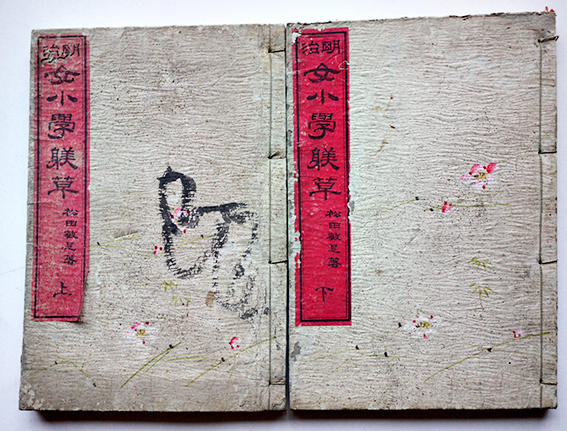 明治
女小學躾草
松田敏足著
上
明治
女小學躾草
松田敏足著
下